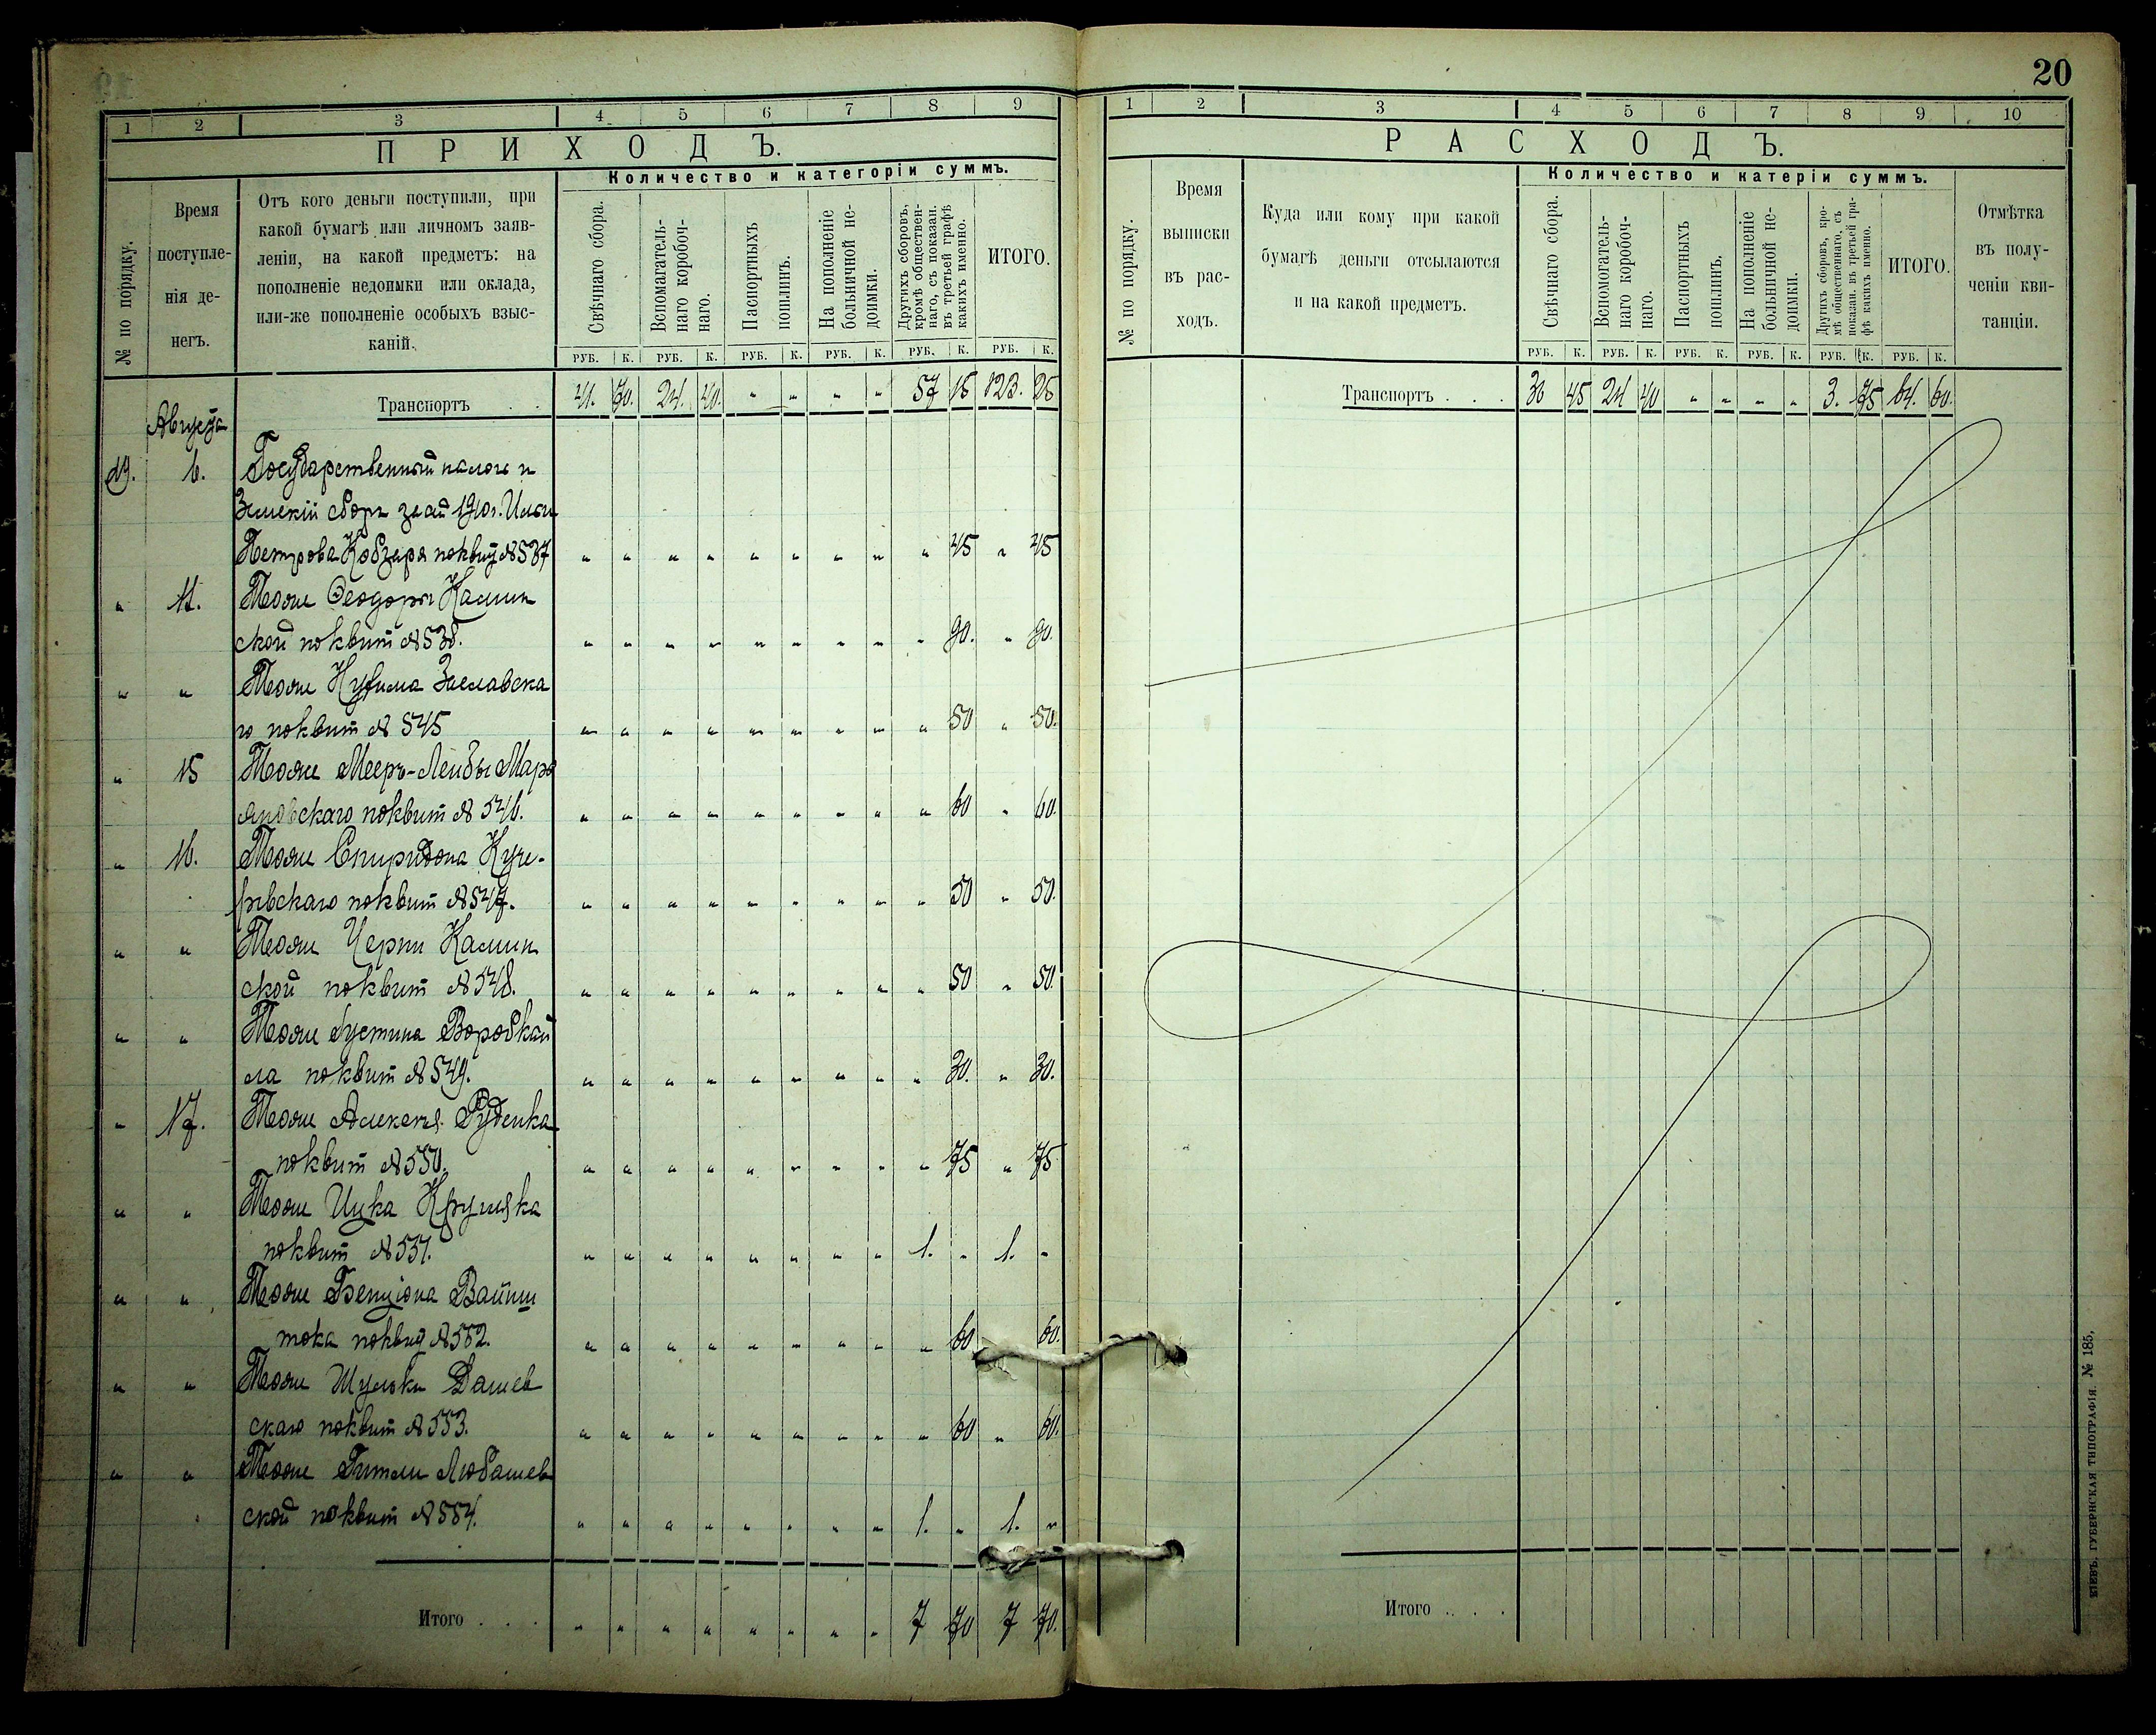 20
1 2 3 4 5 6 7 8 9
ПРИХОДЪ.
№ по порядку.
Время
поступле-
нія де-
негъ.
Отъ кого деньги поступили, при
какой бумагѣ или личномъ заяв-
леніи, на какой предметъ: на
пополненіе недоимки или оклада,
или-же пополненіе особыхъ взыс-
каній.
Количество и категоріи суммъ.
Свѣчнаго сбора.
Вспомагатель-
наго коробоч-
наго.
Паспортныхъ
пошлинъ.
На пополненіе
больничной не-
доимки.
Другихъ сборовъ,
кромѣ обществен-
наго, съ показан.
въ третьей графѣ
какихъ именно.
ИТОГО.
РУБ. К. РУБ. К. РУБ. К. РУБ. К. РУБ. К. РУБ. К.
Транспортъ . . 41. 70. 24. 40. " " " " 57 15 123. 25
Августа
6. Государственный налогъ и
Земскій сборъ за 1910 г.
Петрова Кобзаря по квит № 537 " " " " " " " " " 45 " 45
" 11. Тоже Ѳеодоры Калин
ской по квит № 538. " " " " " " " " " 90. " 90.
" " Тоже Заславска
го по квит № 545 " " " " " " " " " 50 " 50.
" 15 Тоже Мееръ-Лейбы
по квит № 546. " " " " " " " " " 60 " 60.
" 16. Тоже Спиридона Куче-
ровскаго по квит № 547. " " " " " " " " " 50 " 50.
" " Тоже Черни Калин
ской по квит № 548. " " " " " " " " " 50 " 50.
" " Тоже Устина Воробкай
ла по квит № 549. " " " " " " " " " 30. " 30.
" 17. Тоже Алексея Руденка
по квит № 550. " " " " " " " " " 75 " 75
" " Тоже Ицка Кругляка
по квит № 551. " " " " " " " " 1. " 1. "
" " Тоже Бенціона Вайнш
тока по квит № 552. " " " " " " " " " 60 60.
" " Тоже Шулька Дашев
скаго по квит № 553. " " " " " " " " " 60 " 60.
" " Тоже Гитли Любашев
ской по квит № 554. " " " " " " " " 1. " 1. "
Итого . . . " " " " " " " " 7 70 7 70.
1 2 3 4 5 6 7 8 9 10
РАСХОДЪ.
№ по порядку.
Время
выписки
въ рас-
ходъ.
Куда или кому при какой
бумагѣ деньги отсылаются
и на какой предметъ.
Количество и катеріи суммъ.
Свѣчнаго сбора.
Вспомогатель-
наго коробоч-
наго.
Паспортныхъ
пошлинъ.
На пополненіе
больничной не-
доимки.
Другихъ сборовъ, кро-
мѣ общественнаго, съ
показан. въ третьей гра-
фѣ какихъ именно.
ИТОГО.
Отмѣтка
въ полу-
ченіи кви-
танціи.
РУБ. К. РУБ. К. РУБ. К. РУБ. К. РУБ. К. РУБ. К.
Транспортъ . . . 36 45 24 40 " " " " 3. 75 64. 60.
Итого . . .
КІЕВЪ. ГУБЕРНСКАЯ ТИПОГРАФІЯ. № 185,